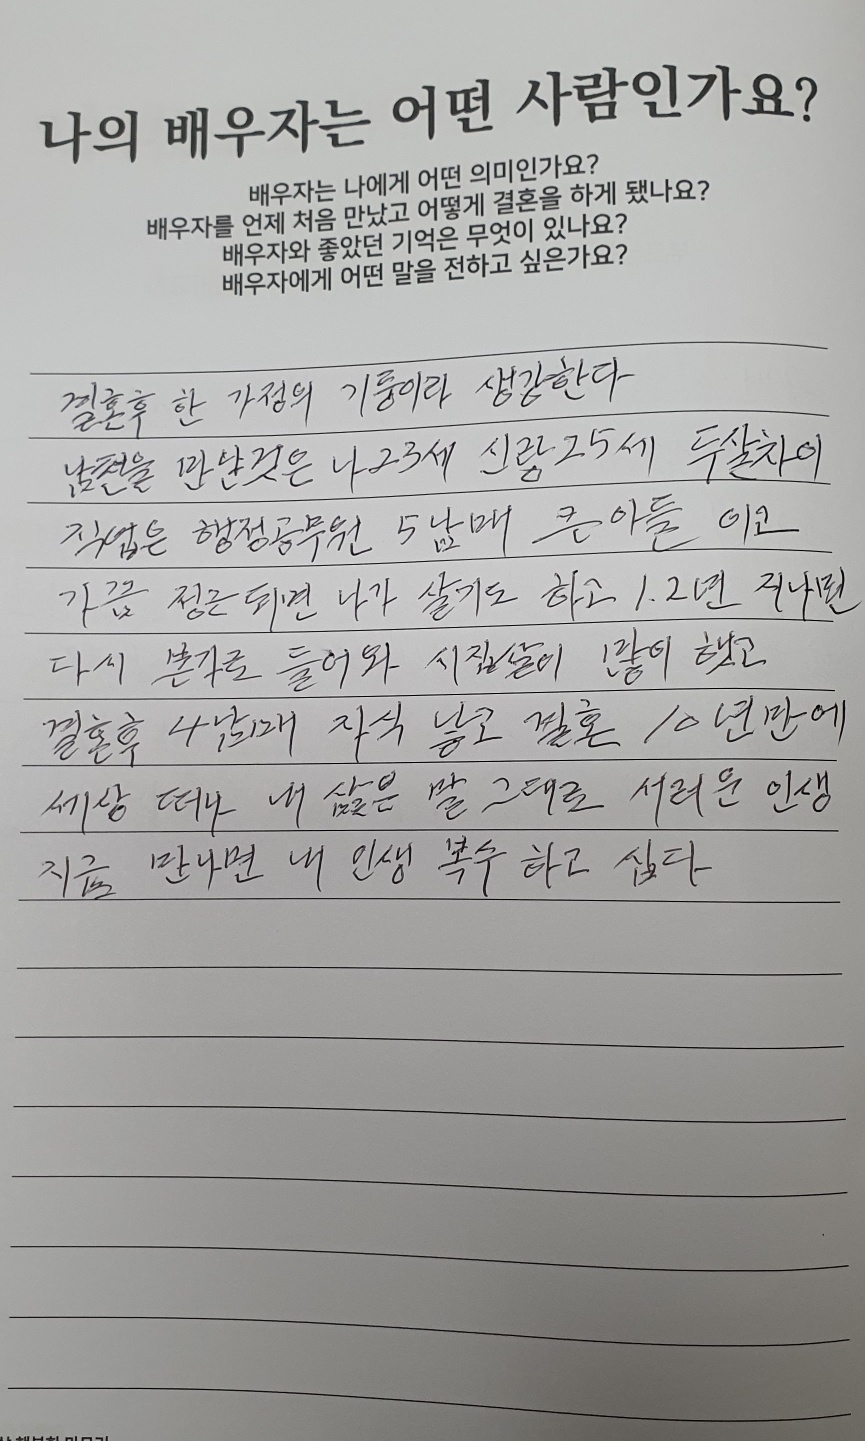 나의 배우자는 어떤 사람인가요?
배우자는 나에게 어떤 의미인가요?
배우자를 언제 처음 만났고 어떻게 결혼을 하게 됐나요?
배우자와 좋았던 기억은 무엇이 있나요?
배우자에게 어떤 말을 전하고 싶은가요?
결혼후 한 가정의 기둥이라 생강한다
남편을 만안것은 나23세 신랑25세 두살차이
직업은 행정공무원 5남매 큰아들 이고
가끔 정근되면 나가 살기도 하고 1.2년 지나면
다시 본가로 들어와 시집살이 많이 했고
결혼후 4남매 자식 낳고 결혼 10년만에
세상 떠나 내 삶은 말 그대로 서러운 인생
지금 만나면 내 인생 복수 하고 십다